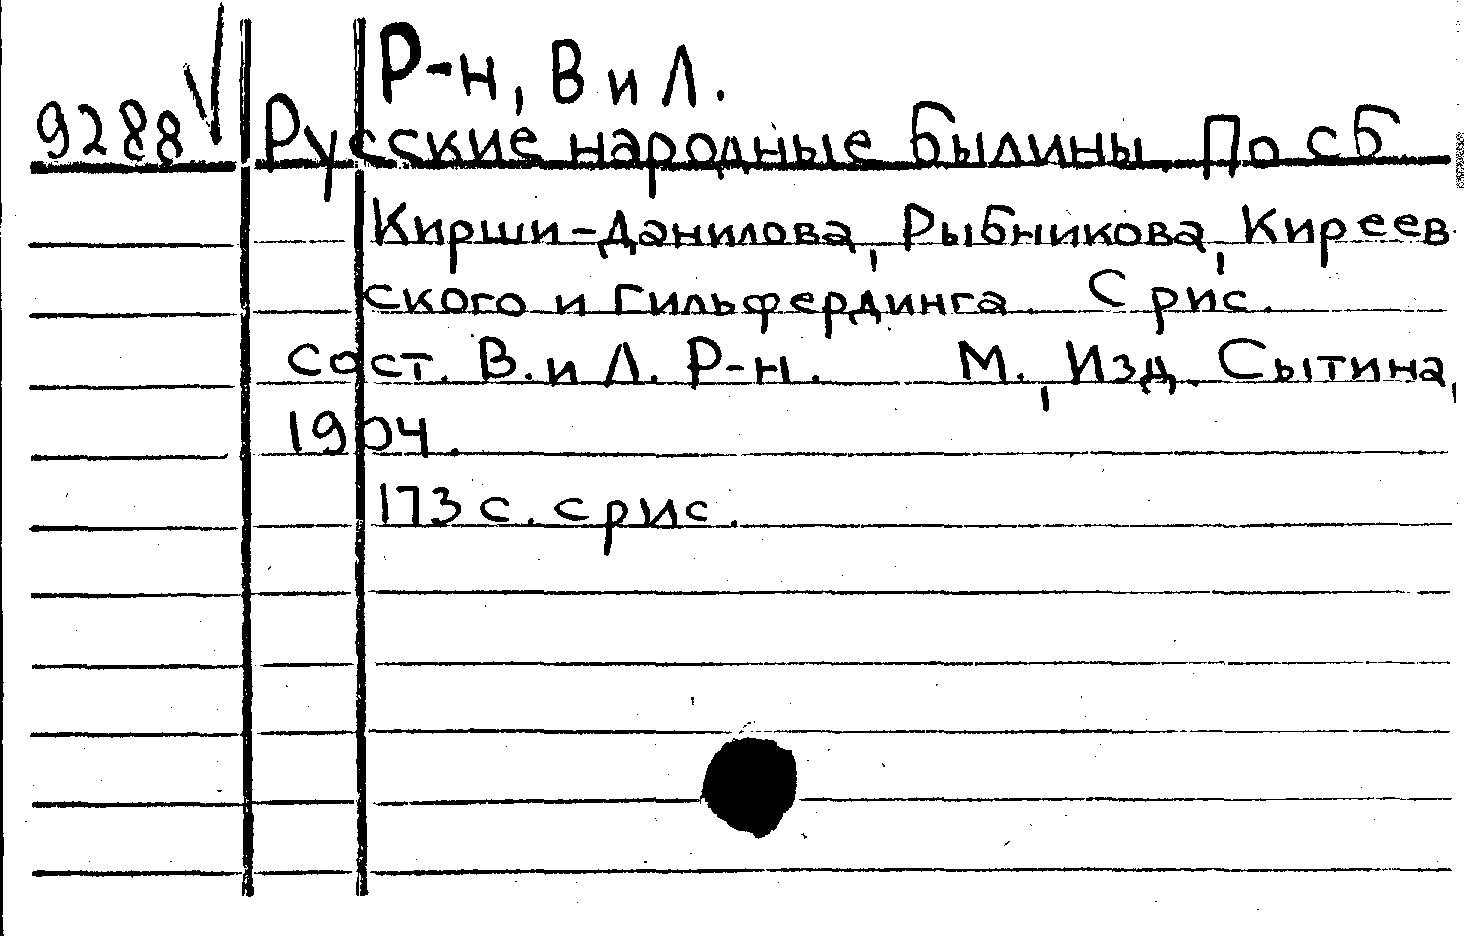 Р-н, В и Л.
9288 Русские народные былины. По сб
Кирши-Данилова, Рыбникова, Киреев
ского и Гильфердинга. С рис.
сост. В. и Л. Р-н. М., Изд. Сытина,
1904.
173 с. с рис.